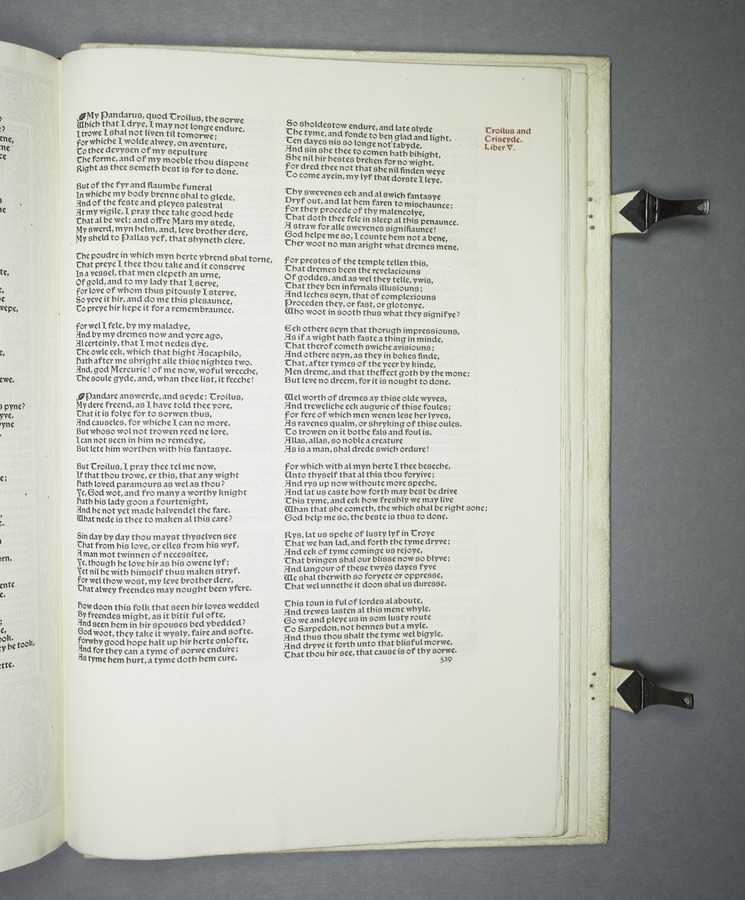 My Pandarus, quod Troilus, the sorwe
Which that I drye, I may not longe endure.
I trowe I shal not liven til tomorwe;
For whiche I wolde alwey, on aventure,
To thee devysen of my sepulture
The forme, and of my moeble thou dispone
Right as thee semeth best is for to done.
But of the fyr and flaumbe funeral
In whiche my body brenne shal to glede,
And of the feste and pleyes palestral
At my vigile, I pray thee take good hede
That al be wel; and offre Mars my stede,
My swerd, myn helm, and, leve brother dere,
My sheld to Pallas yef, that shyneth clere.
The poudre in which myn herte ybrend shal torne,
That preye I thee thou take and it conserve
In a vessel, that men clepeth an urne,
Of gold, and to my lady that I serve,
For love of whom thus pitously I sterve,
So yeve it hir, and do me this plesaunce,
To preye hir kepe it for a remembraunce.
For wel I fele, by my maladye,
And by my dremes now and yore ago,
Al certeinly, that I mot nedes dye.
The owle eek, which that hight Ascaphilo,
Hath after me shright alle thise nightes two.
And, god Mercurie! of me now, woful wrecche,
The soule gyde, and, whan thee list, it fecche!
Pandare answerde, and seyde: Troilus,
My dere freend, as I have told thee yore,
That it is folye for to sorwen thus,
And causeles, for whiche I can no more.
But whoso wol not trowen reed ne lore,
I can not seen in him no remedye,
But lete him worthen with his fantasye.
But Troilus, I pray thee tel me now,
If that thou trowe, er this, that any wight
Hath loved paramours as wel as thou?
Ye, God wot, and fro many a worthy knight
Hath his lady goon a fourtenight,
And he not yet made halvendel the fare.
What nede is thee to maken al this care?
Sin day by day thou mayst thyselven see
That from his love, or elles from his wyf,
A man mot twinnen of necessitee,
Ye, though he love hir as his owene lyf;
Yet nil he with himself thus maken stryf.
For wel thow wost, my leve brother dere,
That alwey freendes may nought been yfere.
How doon this folk that seen hir loves wedded
By freendes might, as it bitit ful ofte,
And seen hem in hir spouses bed ybedded?
God woot, they take it wysly, faire and softe.
Forwhy good hope halt up hir herte onlofte,
And for they can a tyme of sorwe endure;
As tyme hem hurt, a tyme doth hem cure.
So sholdestow endure, and late slyde
The tyme, and fonde to ben glad and light.
Ten dayes nis so longe not t'abyde.
And sin she thee to comen hath bihight,
She nil hir hestes breken for no wight.
For dred thee not that she nil finden weye
To come ayein, my lyf that dorste I leye.
Thy swevenes eek and al swich fantasye
Dryf out, and lat hem faren to mischaunce;
For they procede of thy malencolye,
That doth thee fele in sleep al this penaunce.
A straw for alle swevenes signifiaunce!
God helpe me so, I counte hem not a bene,
Ther woot no man aright what dremes mene.
For prestes of the temple tellen this,
That dremes been the revelaciouns
Of goddes, and as wel they telle, ywis,
That they ben infernals illusiouns;
And leches seyn, that of complexiouns
Proceden they, or fast, or glotonye.
Who woot in sooth thus what they signifye?
Eek othere seyn that thorugh impressiouns,
As if a wight hath faste a thing in minde,
That therof cometh swiche avisiouns;
And othere seyn, as they in bokes finde,
That, after tymes of the yeer by kinde,
Men dreme, and that theffect goth by the mone:
But leve no dreem, for it is nought to done.
Wel worth of dremes ay thise olde wyves,
And treweliche eek augurie of thise foules;
For fere of which men wenen lese her lyves,
As ravenes qualm, or shryking of thise oules.
To trowen on it bothe fals and foul is.
Allas, allas, so noble a creature
As is a man, shal drede swich ordure!
For which with al myn herte I thee beseche,
Unto thyself that al this thou foryive;
And rys up now withoute more speche,
And lat us caste how forth may best be drive
This tyme, and eek how freshly we may live
Whan that she cometh, the which shal be right sone;
God help me so, the beste is thus to done.
Rys, lat us speke of lusty lyf in Troye
That we han lad, and forth the tyme dryve;
And eek of tyme cominge us rejoye,
That bringen shal our blisse now so blyve;
And langour of these twyës dayes fyve
We shal therwith so foryete or oppresse,
That wel unnethe it doon shal us duresse.
This toun is ful of lordes al aboute,
And trewes lasten al this mene whyle.
Go we and pleye us in som lusty route
To Sarpedon, not hennes but a myle.
And thus thou shalt the tyme wel bigyle,
And dryve it forth unto that blisful morwe,
That thou hir see, that cause is of thy sorwe.
519
Troilus and
Criseyde.
Liber V.